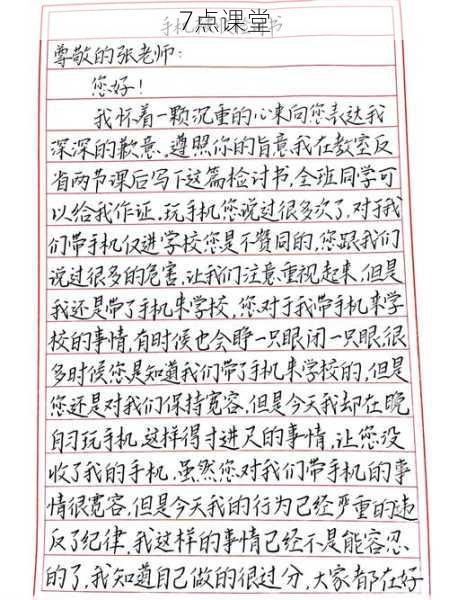 7点课堂
手机 书
尊敬的张老师:
您好!
我怀着一颗沉重的心来向您表达我
深深的歉意、遵照你的旨意,我在教室反
省两节课后写下这篇检讨书,全班同学可
以给我作证,玩手机您说过很多次了,对于我
们带手机仅进学校您是不赞同的,您跟我们
说过很多的危害,让我们注意重视起来,但是
我还是带了手机来学校,您对于我带手机来学
校的事情,有时候也会睁一只眼闭一只眼,很
多时候您是知道我们带了手机来学校的,但是
您还是对我们保持宽容,但是今天我却在晚
自习玩手机,这样得寸进尺的事情,让您没
收了我的手机,虽然您对我们带手机的事
情很宽容,但是今天我的行为已经严重的违
反了纪律,我这样的事情已经不是能容忍
的了,我知道自己做的很过分,大家都在好